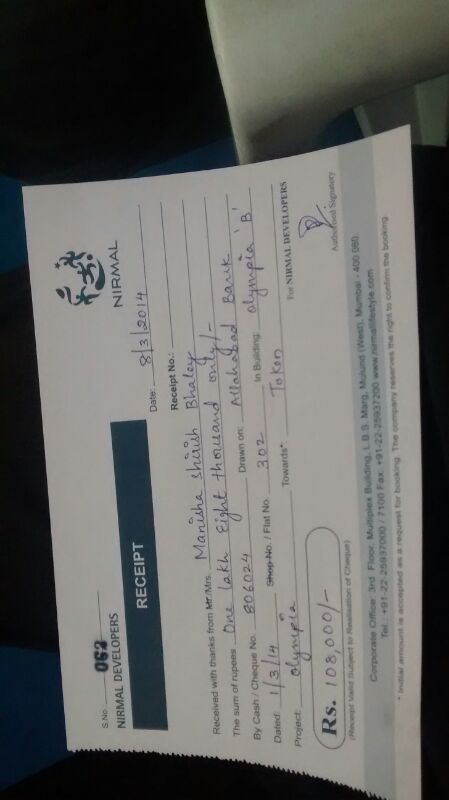 S.No. 062
NIRMAL DEVELOPERS
NIRMAL
RECEIPT
Date: 8/3/2014
Receipt No.:
Received with thanks from Mr./Mrs. Manisha Shirish Bhaley
The sum of rupees One lakh Eight thousand only/-
By Cash / Cheque No. 806024 Drawn on: Allahabad Bank
Dated: 1/3/14 Shop No. / Flat No. 302 In Building: Olympia 'B'
Project: Olympia Towards*: Token
For NIRMAL DEVELOPERS
Rs. 108,000/-
Authorised Signatory
(Receipt Valid Subject to Realisation of Cheque)
Corporate Office: 3rd Floor, Multiplex Building, L.B.S. Marg, Mulund (West), Mumbai - 400 080.
Tel.: +91-22-25937000 / 7100 Fax: +91-22-25937200 www.nirmallifestyle.com
* Initial amount is accepted as a request for booking. The company reserves the right to confirm the booking.